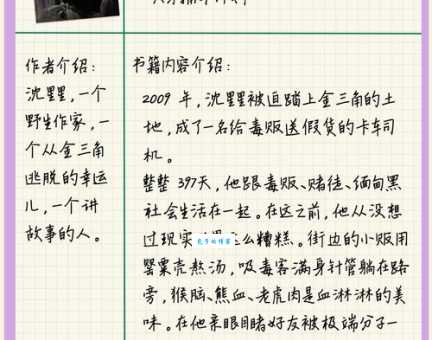 作者介绍：
沈星星，一个
野生作家，一
个从金三角
逃脱的幸运
儿，一个讲
故事的人。
书籍内容介绍：
2009 年，沈星星被迫踏上金三角的土
地，成了一名给毒贩送假货的卡车司
机。
整整 397天，他跟毒贩、赌徒、缅甸黑
社会生活在一起。在这之前，他从没想
过现实 么糟糕。街边的小贩用
罂粟壳熬汤，吸毒客满身针管躺在路
旁，猴脑、熊血、老虎肉是血淋淋的美
味。在他亲眼目睹好友被极端分子一